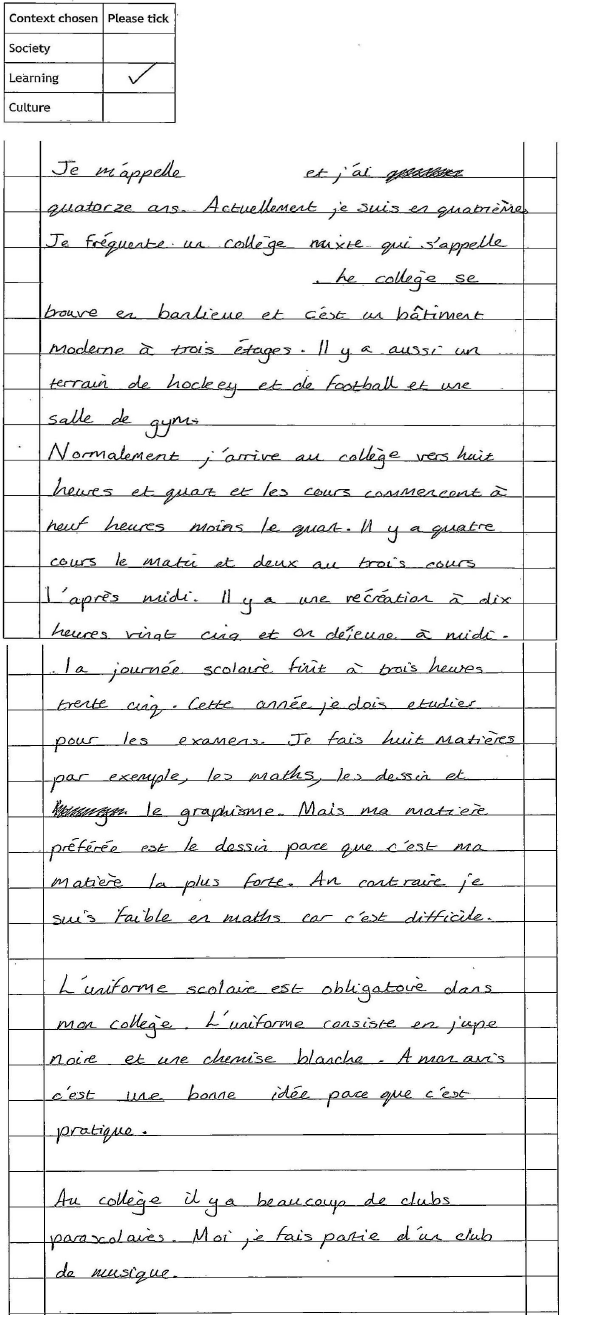 Context chosen Please tick
Society
Learning ✓
Culture
Je m'appelle et j'ai
quatorze ans. Actuellement je suis en quatrième.
Je fréquente un collège mixte qui s'appelle
. Le collège se
trouve en banlieue et c'est un bâtiment
moderne à trois étages. Il y a aussi un
terrain de hockey et de football et une
salle de gym.
Normalement j'arrive au collège vers huit
heures et quart et les cours commencent à
neuf heures moins le quart. Il y a quatre
cours le matin et deux au trois cours
l'après midi. Il y a une récréation à dix
heures vingt cinq et on déjeune à midi.
La journée scolaire finit à trois heures
trente cinq. Cette année je dois etudier
pour les examens. Je fais huit matières
par exemple, les maths, les dessin et
le graphisme. Mais ma matière
préférée est le dessin pace que c'est ma
matière la plus forte. Au contraire je
suis faible en maths car c'est difficile.
L'uniforme scolaire est obligatoire dans
mon collège. L'uniforme consiste en jupe
noire et une chemise blanche. A mon avis
c'est une bonne idée pace que c'est
pratique.
Au collège il y a beaucoup de clubs
parascolaires. Moi je fais partie d'un club
de musique.